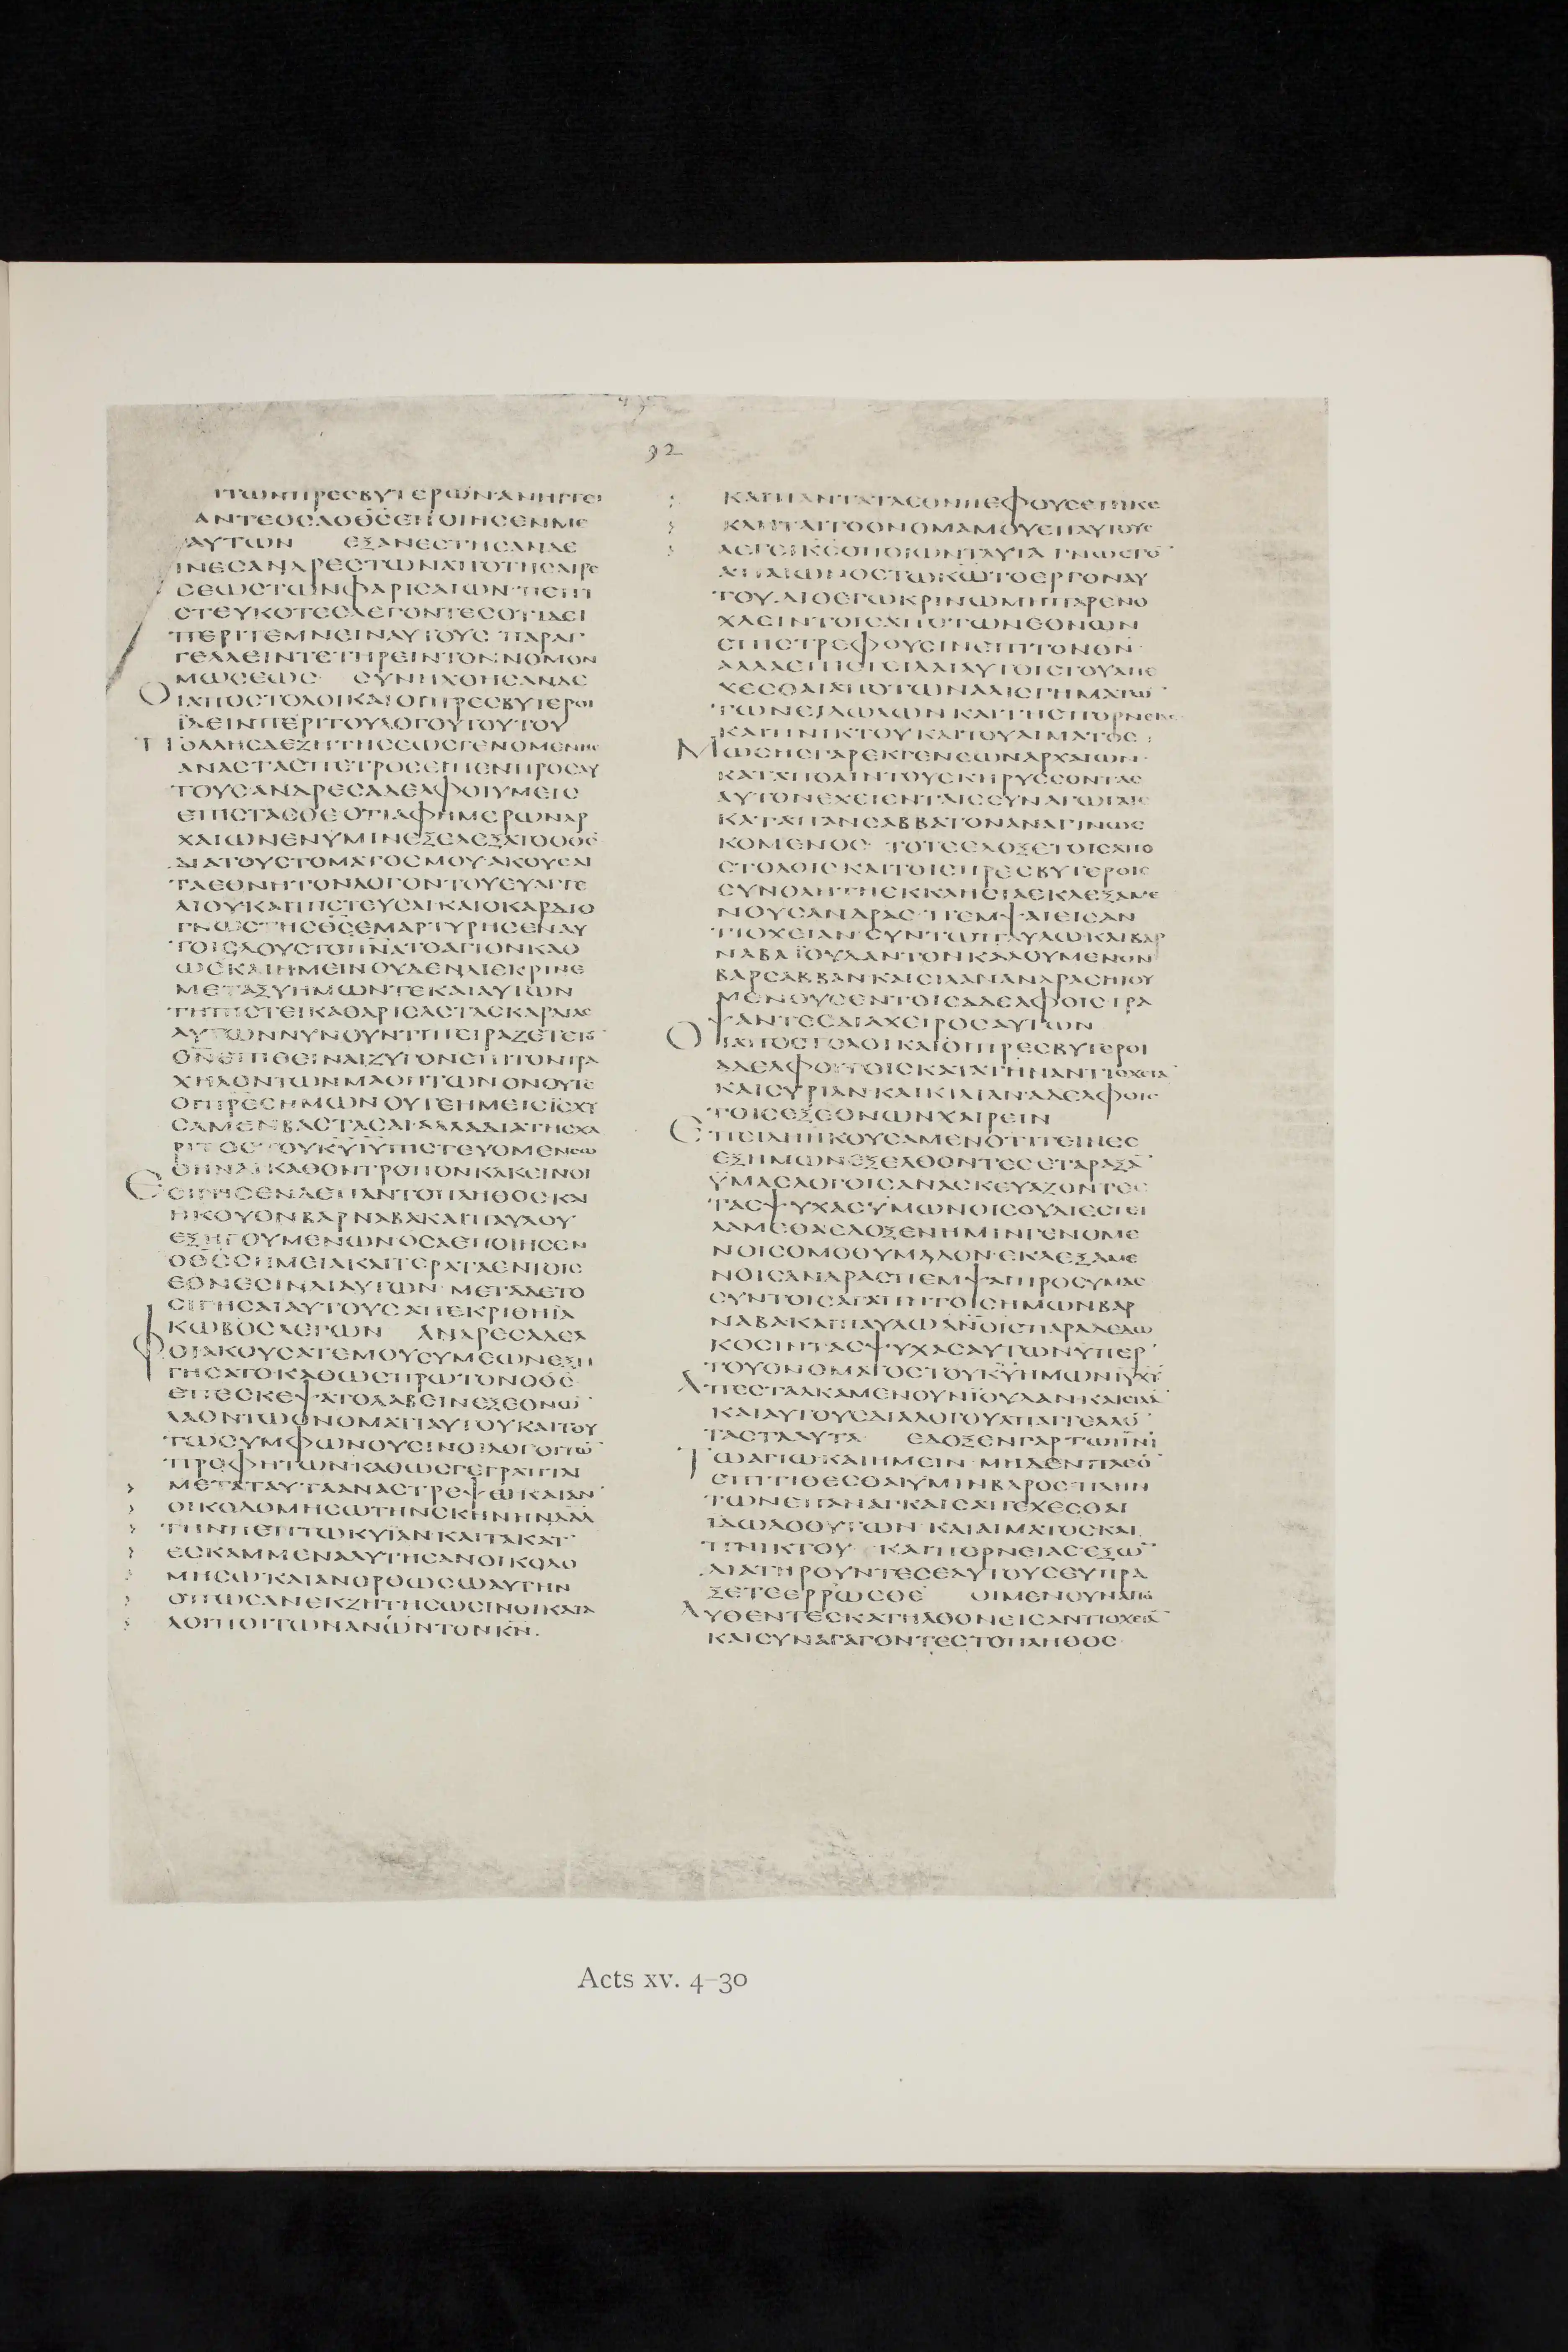 92
ΤΩΝΠΡΕΣΒΥΤΕΡΩΝΑΝΗΓΓΕΙ
ΛΝΤΕΟΣΑΟΘΣΕΠΟΙΗΣΕΝΜΕ
ΑΥΤΩΝ ΕΞΑΝΕΣΤΗΣΑΝΔΕ
ΤΙΝΕΣΑΝΔΡΕΣΤΩΝΑΠΟΤΗΣΑΙΡΕ
ΣΕΩΣΤΩΝΦΑΡΙΣΑΙΩΝ ΠΕΠΙ
ΣΤΕΥΚΟΤΕΣΛΕΓΟΝΤΕΣΟΤΙΔΕΙ
ΠΕΡΙΤΕΜΝΕΙΝΑΥΤΟΥΣ ΠΑΡΑΓ
ΓΕΛΛΕΙΝΤΕΤΗΡΕΙΝΤΟΝΝΟΜΟΝ
ΜΩΣΕΩΣ ΣΥΝΗΧΘΗΣΑΝΔΕ
ΟΙΑΠΟΣΤΟΛΟΙΚΑΙΟΙΠΡΕΣΒΥΤΕΡΟΙ
ΪΔΕΙΝΠΕΡΙΤΟΥΛΟΓΟΥΤΟΥΤΟΥ
ΠΟΛΛΗΣΔΕΖΗΤΗΣΕΩΣΓΕΝΟΜΕΝΗΣ
ΑΝΑΣΤΑΣΠΕΤΡΟΣΕΙΠΕΝΠΡΟΣΑΥ
ΤΟΥΣΑΝΔΡΕΣΑΔΕΛΦΟΙΥΜΕΙΣ
ΕΠΙΣΤΑΣΘΕΟΤΙΑΦΗΜΕΡΩΝΑΡ
ΧΑΙΩΝΕΝΥΜΙΝΕΞΕΛΕΞΑΤΟΟΘΣ
ΔΙΑΤΟΥΣΤΟΜΑΤΟΣΜΟΥΑΚΟΥΣΑΙ
ΤΑΕΘΝΗΤΟΝΛΟΓΟΝΤΟΥΕΥΑΓΓΕ
ΛΙΟΥΚΑΙΠΙΣΤΕΥΣΑΙΚΑΙΟΚΑΡΔΙΟ
ΓΝΩΣΤΗΣΘΣΕΜΑΡΤΥΡΗΣΕΝΑΥ
ΤΟΙΣΔΟΥΣΤΟΠΝΑΤΟΑΓΙΟΝΚΑΘ
ΩΣΚΑΙΗΜΕΙΝΟΥΔΕΝΔΙΕΚΡΙΝΕ
ΜΕΤΑΞΥΗΜΩΝΤΕΚΑΙΑΥΤΩΝ
ΤΗΠΙΣΤΕΙΚΑΘΑΡΙΣΑΣΤΑΣΚΑΡΔΙΑΣ
ΑΥΤΩΝΝΥΝΟΥΝΤΙΠΕΙΡΑΖΕΤΕΤΟ
ΘΝΕΠΙΘΕΙΝΑΙΖΥΓΟΝΕΠΙΤΟΝΤΡΑ
ΧΗΛΟΝΤΩΝΜΑΘΗΤΩΝΟΝΟΥΤΕ
ΟΙΠΡΕΣΗΜΩΝΟΥΤΕΗΜΕΙΣΪΣΧΥ
ΣΑΜΕΝΒΑΣΤΑΣΑΙΑΛΛΑΔΙΑΤΗΣΧΑ
ΡΙΤΟΣΤΟΥΚΥΙΥΠΙΣΤΕΥΟΜΕΝΣΩ
ΘΗΝΑΙΚΑΘΟΝΤΡΟΠΟΝΚΑΚΕΙΝΟΙ
ΕΣΙΓΗΣΕΝΔΕΠΑΝΤΟΠΛΗΘΟΣΚΑΙ
ΗΚΟΥΟΝΒΑΡΝΑΒΑΚΑΙΠΑΥΛΟΥ
ΕΞΗΓΟΥΜΕΝΩΝΟΣΑΕΠΟΙΗΣΕΝ
ΟΘΣΣΗΜΕΙΑΚΑΙΤΕΡΑΤΑΕΝΤΟΙΣ
ΕΘΝΕΣΙΝΔΙΑΥΤΩΝ ΜΕΤΑΔΕΤΟ
ΣΙΓΗΣΑΙΑΥΤΟΥΣΑΠΕΚΡΙΘΗΪΑ
ΚΩΒΟΣΛΕΓΩΝ ΑΝΔΡΕΣΑΔΕΛ
ΦΟΙΑΚΟΥΣΑΤΕΜΟΥΣΥΜΕΩΝΕΞΗ
ΓΗΣΑΤΟΚΑΘΩΣΠΡΩΤΟΝΟΘΣ
ΕΠΕΣΚΕΨΑΤΟΛΑΒΕΙΝΕΞΕΘΝΩ
ΛΑΟΝΤΩΟΝΟΜΑΤΙΑΥΤΟΥΚΑΙΤΟΥ
ΤΩΣΥΜΦΩΝΟΥΣΙΝΟΙΛΟΓΟΙΤΩ
ΠΡΟΦΗΤΩΝΚΑΘΩΣΓΕΓΡΑΠΤΑΙ
ΜΕΤΑΤΑΥΤΑΑΝΑΣΤΡΕΨΩΚΑΙΑΝ
ΟΙΚΟΔΟΜΗΣΩΤΗΝΣΚΗΝΗΝΔΑΔ
ΤΗΝΠΕΠΤΩΚΥΪΑΝΚΑΙΤΑΚΑΤ
ΕΣΚΑΜΜΕΝΑΑΥΤΗΣΑΝΟΙΚΟΔΟ
ΜΗΣΩΚΑΙΑΝΟΡΘΩΣΩΑΥΤΗΝ
ΟΠΩΣΑΝΕΚΖΗΤΗΣΩΣΙΝΟΙΚΑΤΑ
ΛΟΙΠΟΙΤΩΝΑΝΩΝΤΟΝΚΝ.
ΚΑΙΠΑΝΤΑΤΑΕΘΝΗΕΦΟΥΣΕΠΙΚΕ
ΚΛΗΤΑΙΤΟΟΝΟΜΑΜΟΥΕΠΑΥΤΟΥΣ
ΛΕΓΕΙΚΣΟΠΟΙΩΝΤΑΥΤΑ ΓΝΩΣΤΟ
ΑΠΑΙΩΝΟΣΤΩΚΩΤΟΕΡΓΟΝΑΥ
ΤΟΥΔΙΟΕΓΩΚΡΙΝΩΜΗΠΑΡΕΝΟ
ΧΛΕΙΝΤΟΙΣΑΠΟΤΩΝΕΘΝΩΝ
ΕΠΙΣΤΡΕΦΟΥΣΙΝΕΠΙΤΟΝΘΝ
ΑΛΛΑΕΠΙΣΤΕΙΛΑΙΑΥΤΟΙΣΤΟΥΑΠΕ
ΧΕΣΘΑΙΑΠΟΤΩΝΑΛΙΣΓΗΜΑΤΩ
ΤΩΝΕΙΔΩΛΩΝΚΑΙΤΗΣΠΟΡΝΕΙΑΣ
ΚΑΙΠΝΙΚΤΟΥΚΑΙΤΟΥΑΙΜΑΤΟΣ
ΜΩΣΗΣΓΑΡΕΚΓΕΝΕΩΝΑΡΧΑΙΩΝ
ΚΑΤΑΠΟΛΙΝΤΟΥΣΚΗΡΥΣΣΟΝΤΑΣ
ΑΥΤΟΝΕΧΕΙΕΝΤΑΙΣΣΥΝΑΓΩΓΑΙΣ
ΚΑΤΑΠΑΝΣΑΒΒΑΤΟΝΑΝΑΓΙΝΩΣ
ΚΟΜΕΝΟΣ ΤΟΤΕΕΔΟΞΕΤΟΙΣΑΠΟ
ΣΤΟΛΟΙΣΚΑΙΤΟΙΣΠΡΕΣΒΥΤΕΡΟΙΣ
ΣΥΝΟΛΗΤΗΕΚΚΛΗΣΙΑΕΚΛΕΞΑΜΕ
ΝΟΥΣΑΝΔΡΑΣ ΠΕΜΨΑΙΕΙΣΑΝ
ΤΙΟΧΕΙΑΝΣΥΝΤΩΠΑΥΛΩΚΑΙΒΑΡ
ΝΑΒΑΪΟΥΔΑΝΤΟΝΚΑΛΟΥΜΕΝΟΝ
ΒΑΡΣΑΒΒΑΝΚΑΙΣΙΛΑΝΑΝΔΡΑΣΗΓΟΥ
ΜΕΝΟΥΣΕΝΤΟΙΣΑΔΕΛΦΟΙΣΓΡΑ
ΨΑΝΤΕΣΔΙΑΧΕΙΡΟΣΑΥΤΩΝ
ΟΙΑΠΟΣΤΟΛΟΙΚΑΙΟΙΠΡΕΣΒΥΤΕΡΟΙ
ΑΔΕΛΦΟΙΤΟΙΣΚΑΤΑΤΗΝΑΝΤΙΟΧΕΙΑ
ΚΑΙΣΥΡΙΑΝΚΑΙΚΙΛΙΑΝΑΔΕΛΦΟΙΣ
ΤΟΙΣΕΞΕΘΝΩΝΧΑΙΡΕΙΝ
ΕΠΕΙΔΗΗΚΟΥΣΑΜΕΝΟΤΙΤΙΝΕΣ
ΕΞΗΜΩΝΕΞΕΛΘΟΝΤΕΣΕΤΑΡΑΞΑ
ΫΜΑΣΛΟΓΟΙΣΑΝΑΣΚΕΥΑΖΟΝΤΕΣ
ΤΑΣΨΥΧΑΣΥΜΩΝΟΙΣΟΥΔΙΕΣΤΕΙ
ΛΑΜΕΘΑΕΔΟΞΕΝΗΜΙΝΓΕΝΟΜΕ
ΝΟΙΣΟΜΟΘΥΜΑΔΟΝΕΚΛΕΞΑΜΕ
ΝΟΙΣΑΝΔΡΑΣΠΕΜΨΑΙΠΡΟΣΥΜΑΣ
ΣΥΝΤΟΙΣΑΓΑΠΗΤΟΙΣΗΜΩΝΒΑΡ
ΝΑΒΑΚΑΙΠΑΥΛΩΑΝΟΙΣΠΑΡΑΔΕΔΩ
ΚΟΣΙΝΤΑΣΨΥΧΑΣΑΥΤΩΝΥΠΕΡ
ΤΟΥΟΝΟΜΑΤΟΣΤΟΥΚΥΗΜΩΝΙΥΧΥ
ΑΠΕΣΤΑΛΚΑΜΕΝΟΥΝΪΟΥΔΑΝΚΑΙΣΙΛΑ
ΚΑΙΑΥΤΟΥΣΔΙΑΛΟΓΟΥΑΠΑΓΓΕΛΛΟ
ΤΑΣΤΑΑΥΤΑ ΕΔΟΞΕΝΓΑΡΤΩΠΝΙ
ΤΩΑΓΙΩΚΑΙΗΜΕΙΝ ΜΗΔΕΝΠΛΕΟ
ΕΠΙΤΙΘΕΣΘΑΙΥΜΙΝΒΑΡΟΣΠΛΗΝ
ΤΩΝΕΠΑΝΑΓΚΑΙΣΑΠΕΧΕΣΘΑΙ
ΙΔΩΛΟΘΥΤΩΝΚΑΙΑΙΜΑΤΟΣΚΑΙ
ΠΝΙΚΤΟΥ ΚΑΙΠΟΡΝΕΙΑΣΕΞΩ
ΔΙΑΤΗΡΟΥΝΤΕΣΕΑΥΤΟΥΣΕΥΠΡΑ
ΞΕΤΕΕΡΡΩΣΘΕ ΟΙΜΕΝΟΥΝΑΠΟ
ΛΥΘΕΝΤΕΣΚΑΤΗΛΘΟΝΕΙΣΑΝΤΙΟΧΕΙΑ
ΚΑΙΣΥΝΑΓΑΓΟΝΤΕΣΤΟΠΛΗΘΟΣ
Acts xv. 4–30